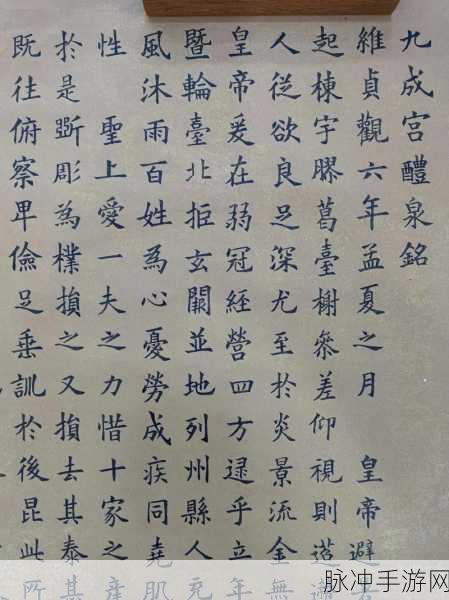 九成宫醴泉銘
維貞觀六年孟夏之月 皇帝避
起棟宇膠葛臺榭參差仰視則迢
人從欲良足深尤至於炎景流金無
皇帝爰在弱冠經營四方逮乎立年
暨輪臺北拒玄闕並地列州縣人充
風沐雨百姓為心憂勞成疾同堯肌
性 聖上愛一夫之力惜十家之產
於是斲彫為樸損之又損去其泰甚
既往俯察卑儉足垂訓於後昆此所
脉冲手游网